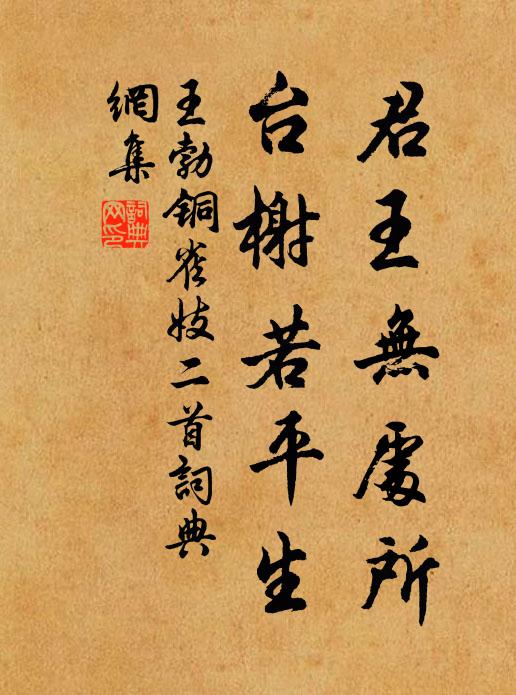 君王無處所
台榭若平生
王勃銅雀妓二首詞典
網集
詞典
网印